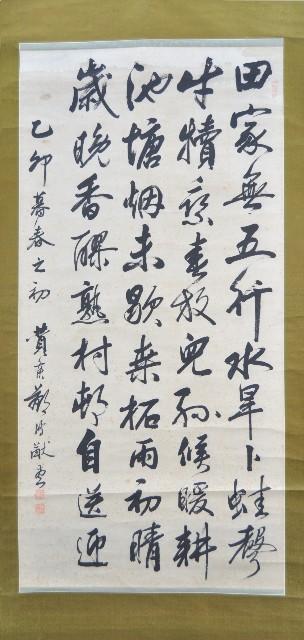 田家無五行水旱卜蛙聲
牛犢乘春放兒孫候暖耕
池塘烟未歇桑柘雨初晴
歲晚香醪熟村邨自送迎
乙卯暮春之初 鄭 書